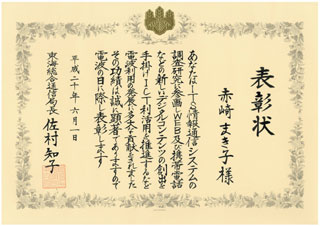 表彰状
赤崎まき子様
あなたはITS情報通信システムの
調査研究に参画しWEB及び携帯電話
などの新しいデジタルコンテンツの創出を
手掛けICT利活用を推進するなど
電波利用の発展に多大な貢献をされました
その功績は誠に顕著でありますので
電波の日に際し表彰します
平成二十年六月一日
東海総合通信局長 佐村知子